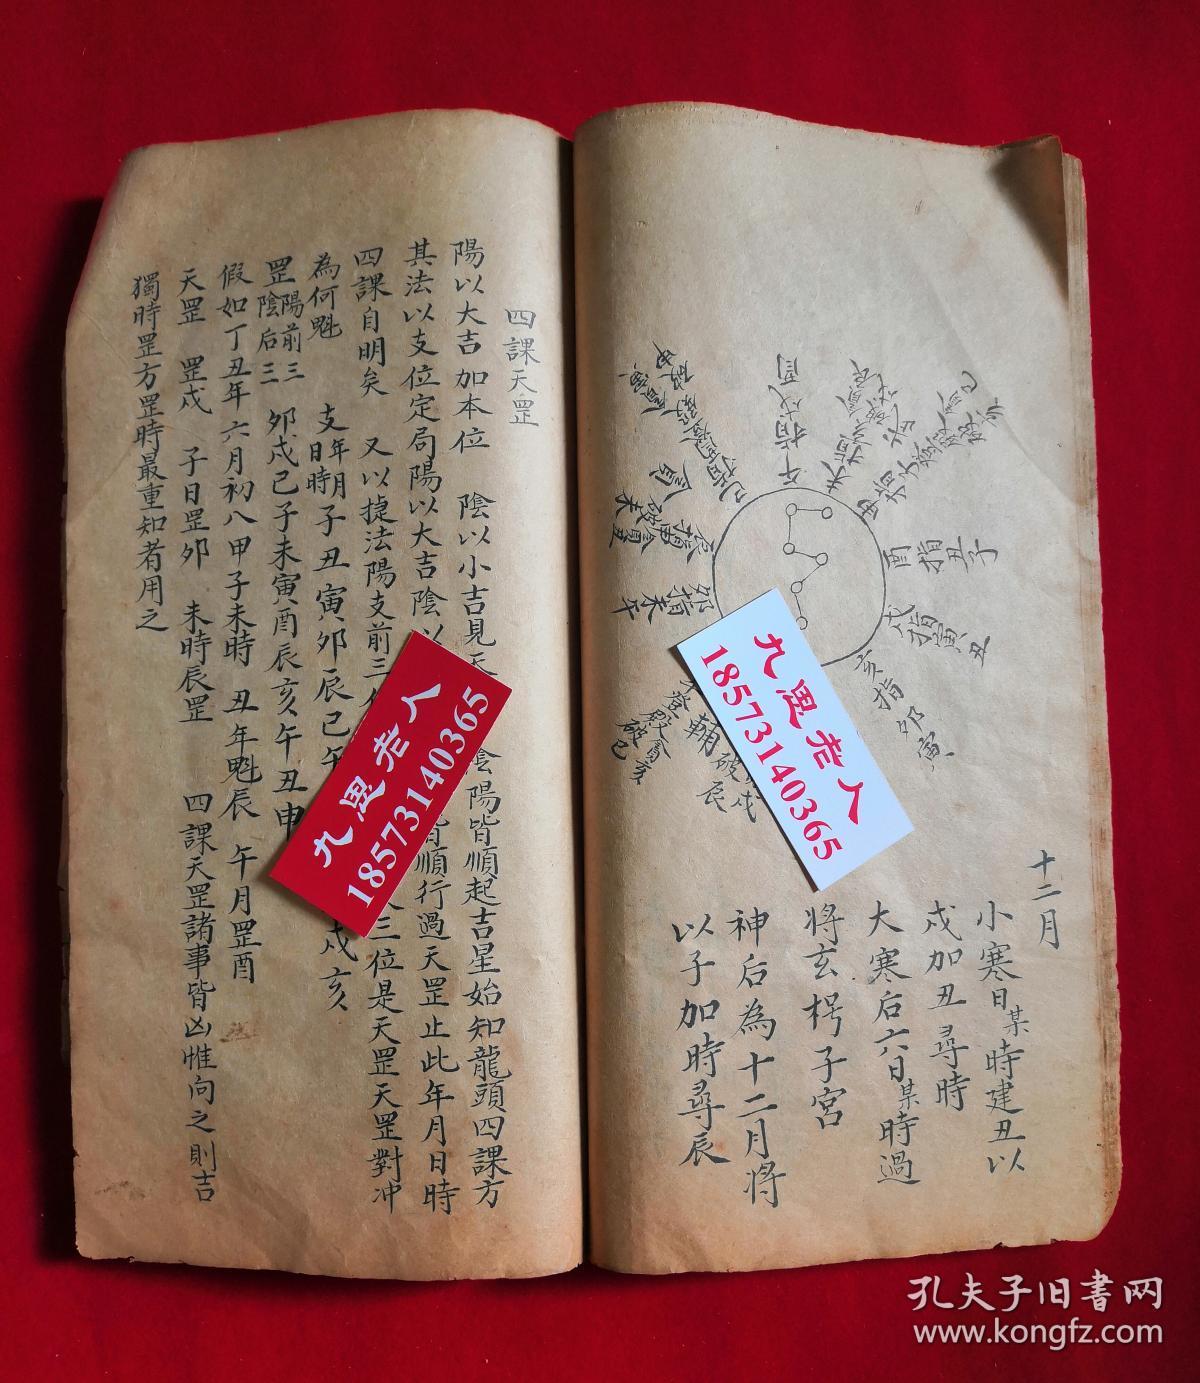 十二月
小寒日某時建丑以
戍加丑尋時
大寒后六日某時過
將玄枵子宮
神后為十二月將
以子加時尋辰
午指戍
酉指丑子
戍指寅丑
亥指卯寅
卯指未午
登殿
輔
破辰
破巳
四課天罡
陽以大吉加本位 陰以小吉見天
陰陽皆順起吉星始知龍頭四課方
其法以支位定局陽以大吉陰以
皆順行過天罡止此年月日時
四課自明矣 又以捷法陽支前三
三位是天罡天罡對冲
為何魁 支年月日時 子丑寅卯辰巳午
戍亥
罡陽前三陰后三 卯戍巳子未寅酉辰亥午丑申
假如丁丑年六月初八甲子未時 丑年魁辰 午月罡酉
天罡 罡戍 子日罡卯 未時辰罡 四課天罡諸事皆凶惟向之則吉
獨時罡方罡時最重知者用之
九思老人
18573140365
九思老人
18573140365
孔夫子旧书网
www.kongfz.com